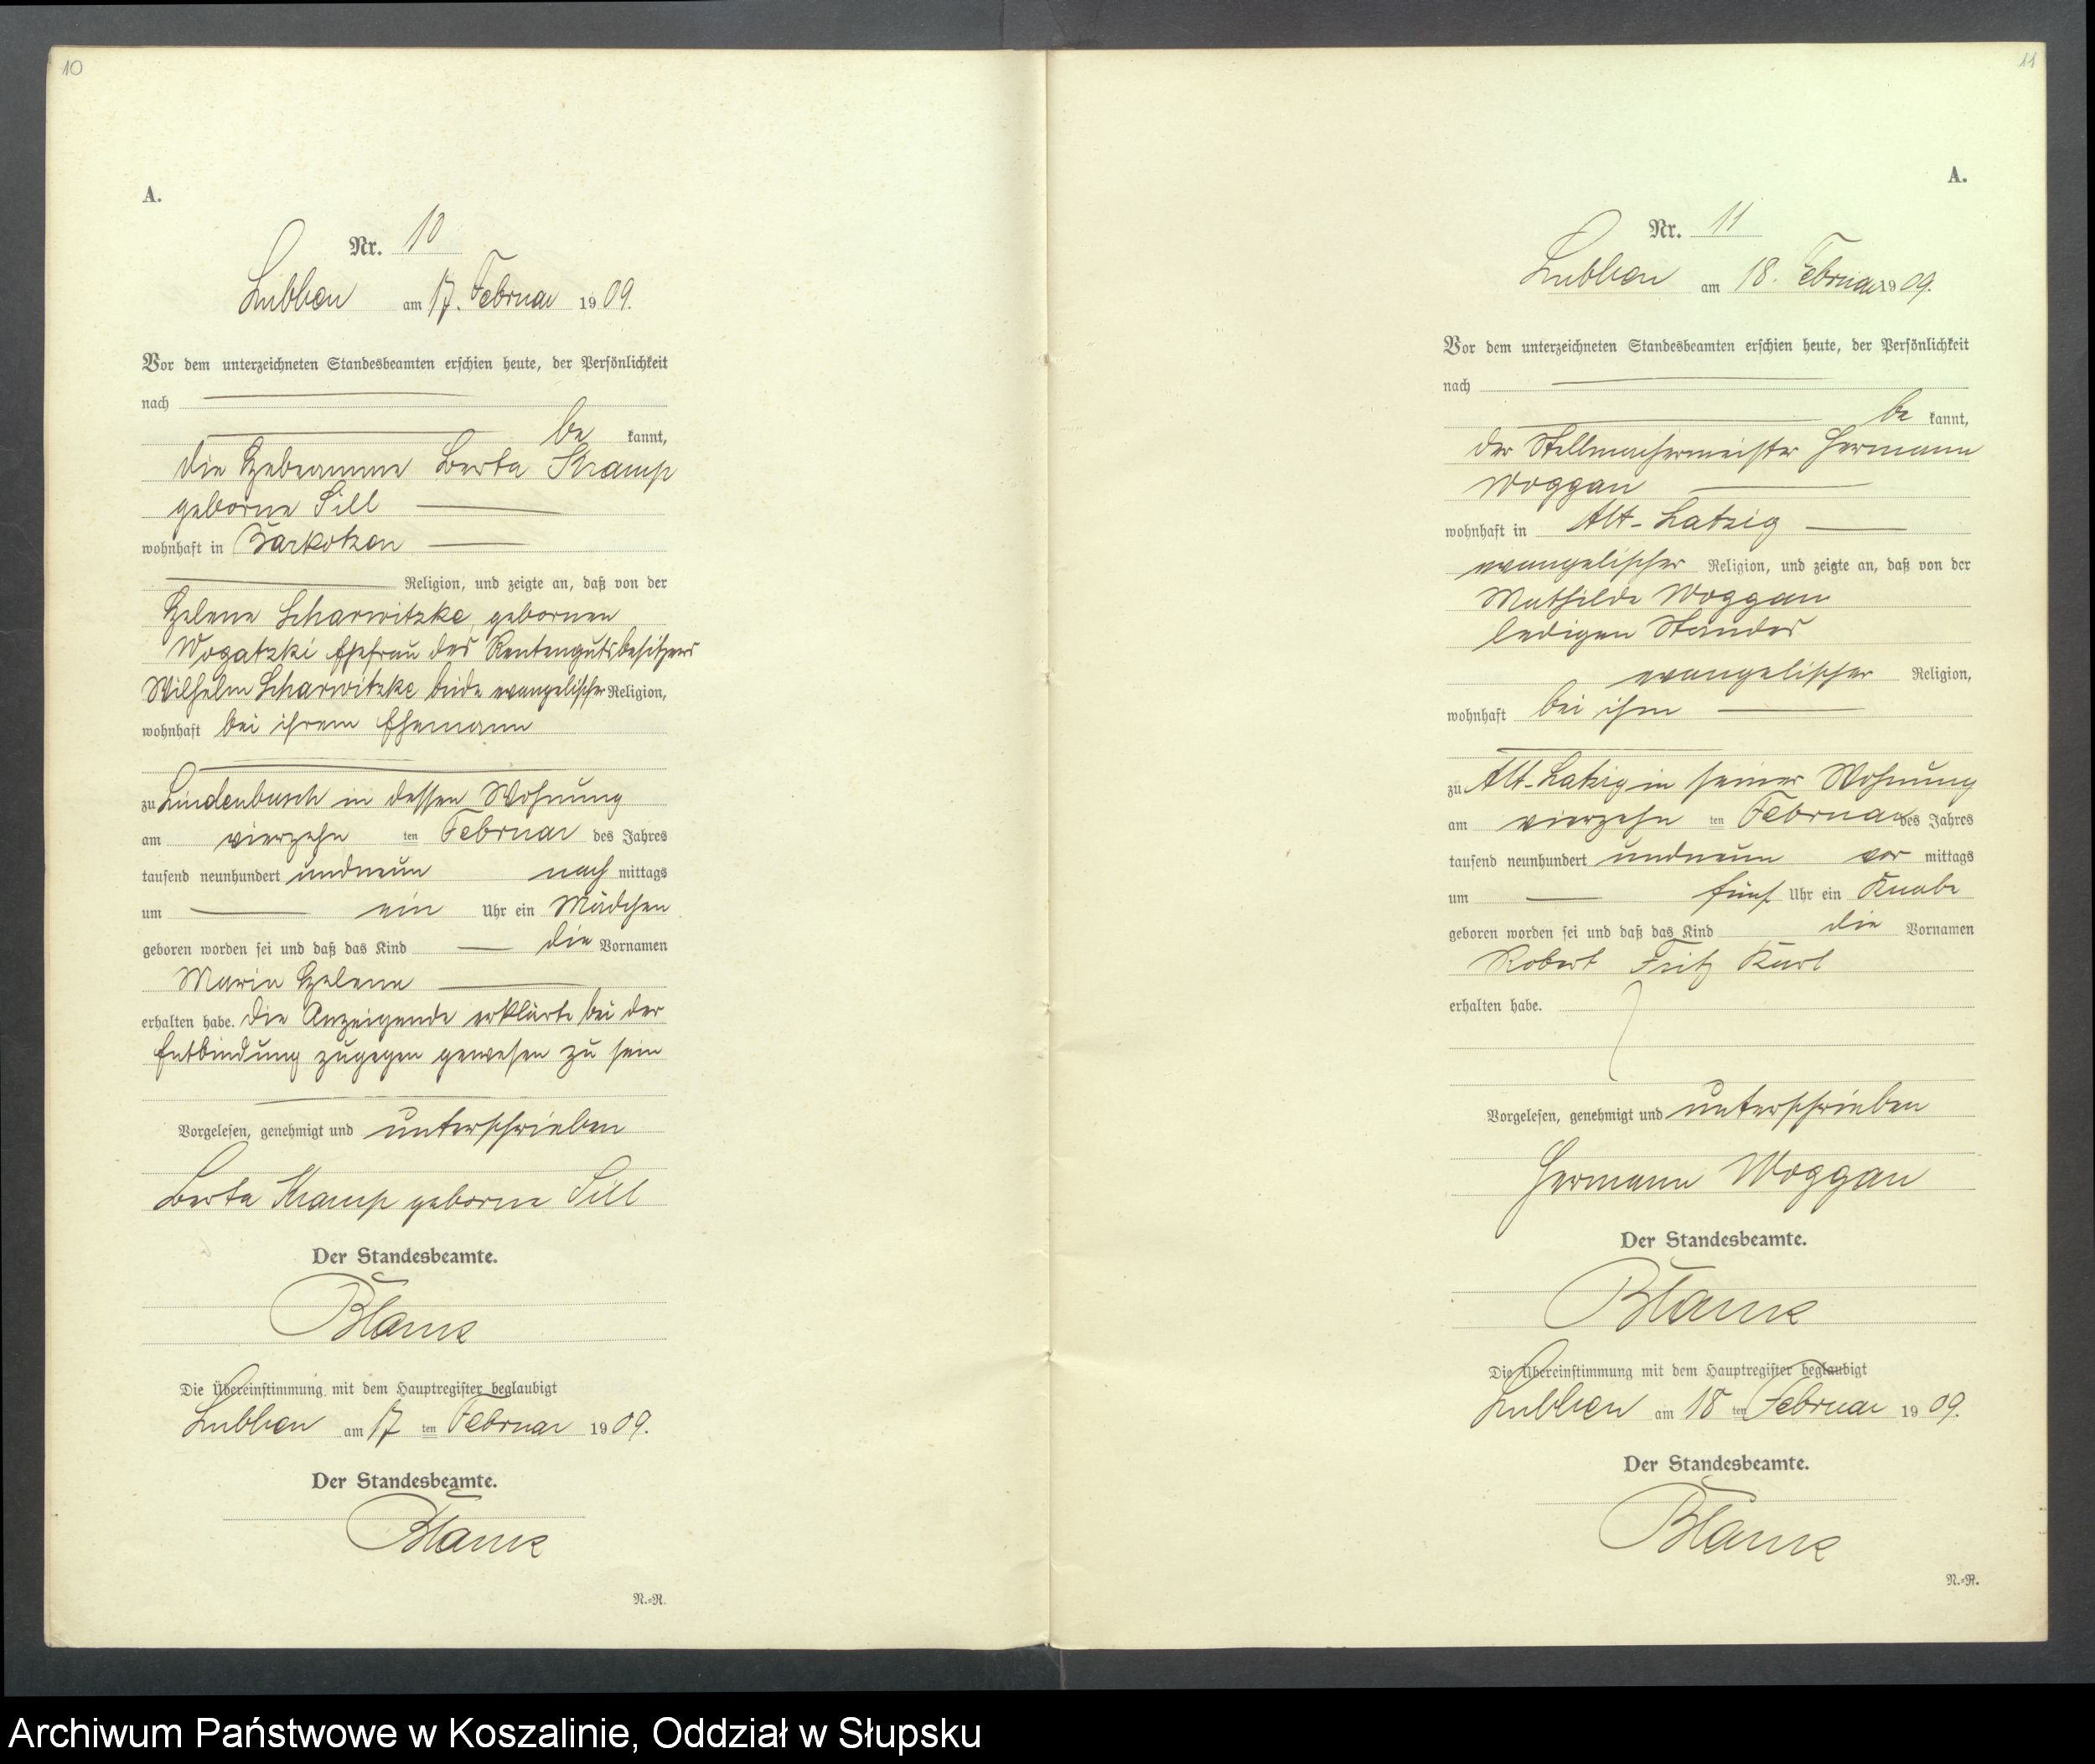 10
A.
Nr. 10
Lubben am 17. Februar 1909.
Vor dem unterzeichneten Standesbeamten erschien heute, der Persönlichkeit
nach
be kannt,
die Hebeamme Berta Kramp
geborne Sill
wohnhaft in Barkotzen
Religion, und zeigte an, daß von der
Helene Scharwitzke, gebornen
Wogatzki Ehefrau des Rentengutsbesitzers
Wilhelm Scharwitzke beide evangelischer Religion,
wohnhaft bei ihrem Ehemann
zu Lindenbusch in dessen Wohnung
am vierzehn ten Februar des Jahres
tausend neunhundert undneun nach mittags
um ein Uhr ein Mädchen
geboren worden sei und daß das Kind die Vornamen
Marie Helene
erhalten habe. Die Anzeigende erklärte bei der
Entbindung zugegen gewesen zu sein
Vorgelesen, genehmigt und unterschrieben
Berta Kramp geborne Sill
Der Standesbeamte.
Die Übereinstimmung mit dem Hauptregister beglaubigt
Lubben am 17 ten Februar 1909.
Der Standesbeamte.
N.=R.
11
A.
Nr. 11
Lubben am 18. Februar 1909.
Vor dem unterzeichneten Standesbeamten erschien heute, der Persönlichkeit
nach
be kannt,
der Stellmachermeister Hermann
Woggan
wohnhaft in Alt-Latzig
evangelischer Religion, und zeigte an, daß von der
Mathilde Woggan
ledigen Standes
evangelischer Religion,
wohnhaft bei ihm
zu Alt-Latzig in seiner Wohnung
am vierzehn ten Februar des Jahres
tausend neunhundert undneun vor mittags
um fünf Uhr ein Knabe
geboren worden sei und daß das Kind die Vornamen
Robert Fritz Karl
erhalten habe.
Vorgelesen, genehmigt und unterschrieben
Hermann Woggan
Der Standesbeamte.
Die Übereinstimmung mit dem Hauptregister beglaubigt
Lubben am 18 ten Februar 1909.
Der Standesbeamte.
N.=R.
Archiwum Państwowe w Koszalinie, Oddział w Słupsku